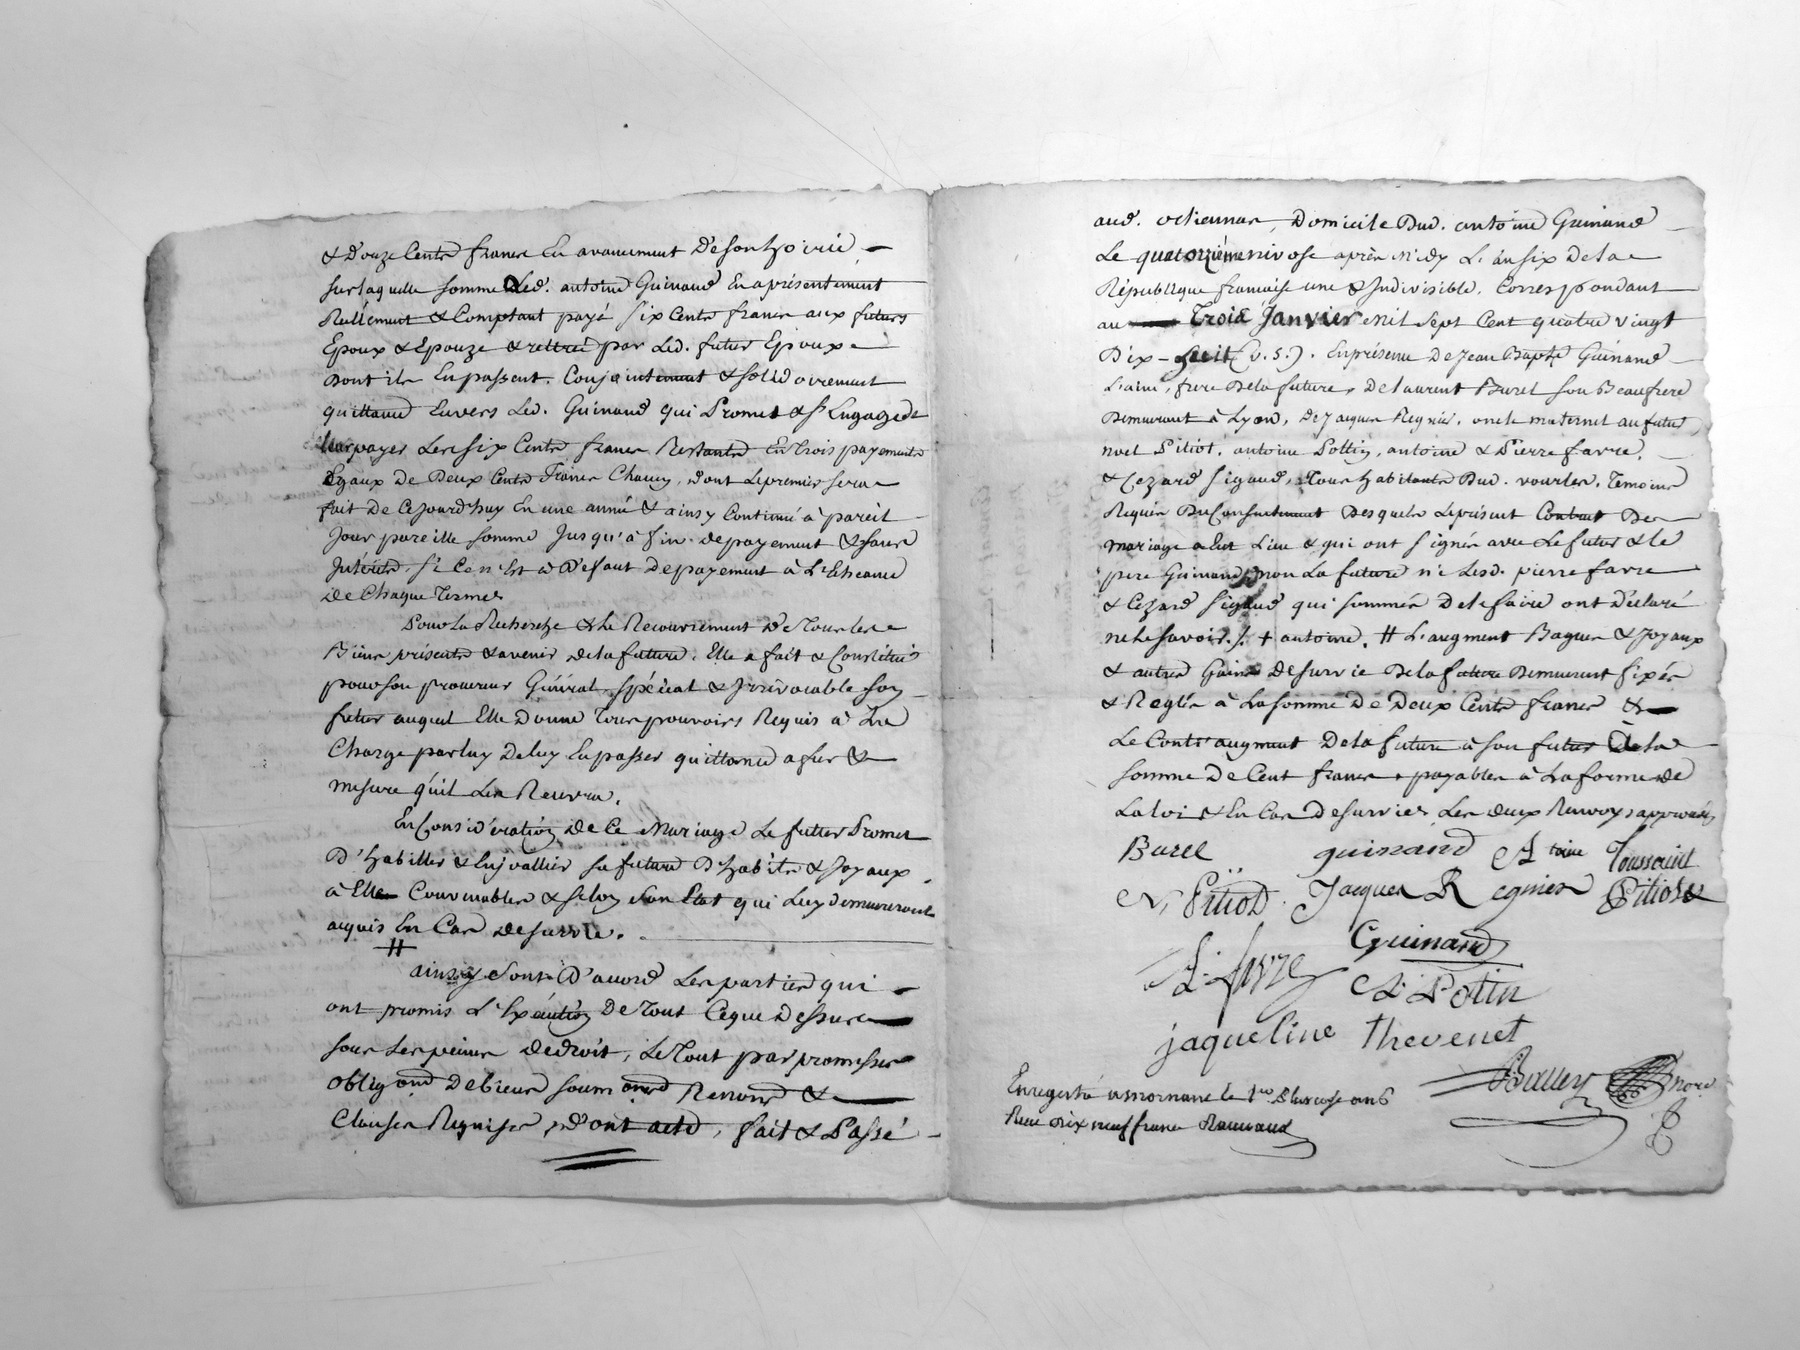 & Douze Cents francs En avancement De son hoirie,
sur laquelle somme Led. antoine Guinand En a présentement
Réellement & Comptant payé six Cents francs aux futurs
Epoux & Epouze & rettiré par Led. futur Epoux
Dont ils En passent. Conjointement & solidairement
quittance Envers Led. Guinand qui Promet & s'Engage de
leur payer Les six Cents francs Restants En Trois payements
Egaux De Deux Cents Francs Chacun, dont Le premier sera
fait De Ce Jourd'huy En une année & ainsy Continué à pareil
Jour pareille somme Jusqu'à fin De payement & sans
Intérêts. si Ce n'Est à Défaut De payement à L'Echeance
De Chaque Terme.
Pour La Recherche & Le Recouvrement De Tous les
Biens présents & avenir de la future. Elle a fait & Constitué
pour son procureur Général, spécial & Irrévocable son
futur auquel Elle Donne Tous pouvoirs Requis à La
Charge par luy De luy En passer quittance a fur &
mesure qu'il Les Recevra.
En Considération De Ce Mariage Le futur Promet
D'habiller & Enjoallier sa future D'habits & Joyaux
à Elle Convenables & selon son Etat qui Luy Demeureront
acquis En Cas De survie.
#
ainsy Sont D'accord Les parties qui
ont promis L'Exécution De Tout Ce que Dessus
sous Les peines De droit, Le Tout par promesses
obligons De biens soumons Renons &
Clauses Requises, Dont acte, fait & Passé
aud. orliennas, Domicile Dud. antoine Guinand
Le quatorzième nivose après midy L'an six De la
République francaise une & Indivisible. Correspondant
au Trois Janvier mil sept Cent quatre vingt
Dix-huit (v.s.). En présence De Jean Bapte Guinand
L'ainé, frere De la future, De laurent Burel son Beaufrere
Demeurant à Lyon, De Jacques Regnier, oncle maternel au futur,
noel Pitiot, antoine Pottin, antoine & Pierre favre,
& Cezard Sigaud, Tous habitants Dud. vourles. Temoins
Requis Du Consentement Desquels Le présent Contrat De
mariage a Eut Lieu & qui ont signés avec Le futur & le
pere Guinand, non La future ni Lesd. pierre favre
& Cezard Sigaud qui sommés De le faire ont Déclaré
ne Le savoir./. + antoine. # L'augment Bagues & Joyaux
& autres Gains De survie De la future Demeurent fixés
& Réglés à La somme De Deux Cents francs &
Le Contr'augment De la future à son futur à la
somme De Cent francs + payables à La forme De
La loi & En Cas De survie. Les deux Renvoys approuvés
Burel guinand A toine Toussaint
N, Pitiot Jacques Regnier Pitiot
A. favre Guinand
A. Potin
jaqueline thevenet
Balley nore
Enregistré a mornant le 1er Pluviose an 6
Recu dix neuf francs